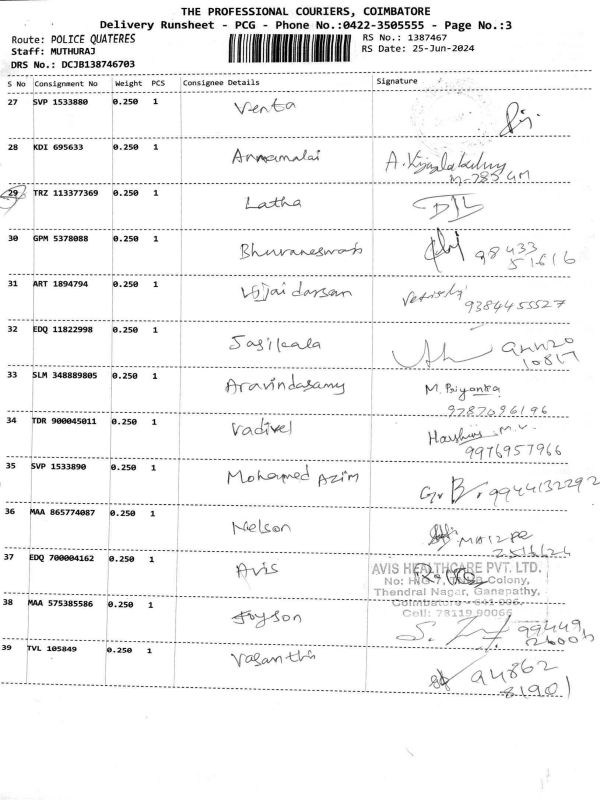 THE PROFESSIONAL COURIERS, COIMBATORE
Delivery Runsheet - PCG - Phone No.:0422-3505555 - Page No.:3
Route: POLICE QUATERES RS No.: 1387467
Staff: MUTHURAJ RS Date: 25-Jun-2024
DRS No.: DCJB138746703
S No Consignment No Weight PCS Consignee Details Signature
27 SVP 1533880 0.250 1 Venta
28 KDI 695633 0.250 1 Annamalai
29 TRZ 113377369 0.250 1 Latha
30 GPM 5378088 0.250 1 Bhuvaneswari 98433
51616
31 ART 1894794 0.250 1 Vijjai darsan
9384455527
32 EDQ 11822998 0.250 1 Sasikala
10817
33 SLM 348889805 0.250 1 Aravindasamy M. Priyanka
9787096196
34 TDR 900045011 0.250 1 Vadivel Harshini M.V.
9976957966
35 SVP 1533890 0.250 1 Mohamed Azim 9944132292
36 MAA 865774087 0.250 1 Nelson
37 EDQ 700004162 0.250 1 Avis AVIS HEALTHCARE PVT. LTD.
Colony,
Thendral Nagar, Ganapathy,
Coimbatore - 641 006.
Cell: 78119 90066
38 MAA 575385586 0.250 1 Joyson 99449
26006
39 TVL 105849 0.250 1 Vasanthi 94862
81901